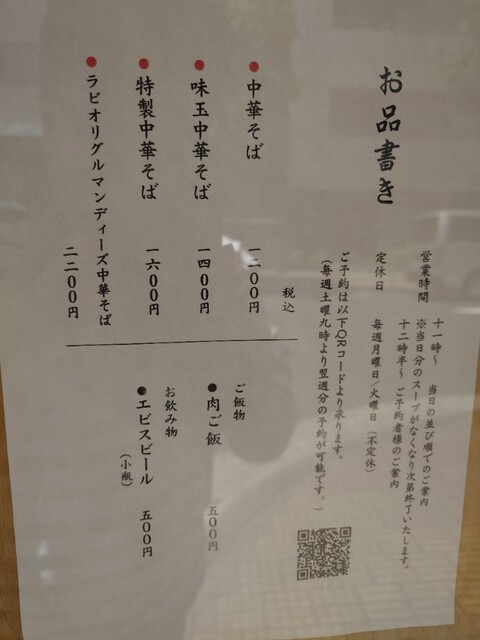 お品書き
営業時間
十一時～ 当日の並び順でのご案内
※当日分のスープがなくなり次第終了いたします。
十二時半～ ご予約者様のご案内
定休日
毎週月曜日／火曜日（不定休）
ご予約は以下QRコードより承ります。
（毎週土曜九時より翌週分の予約が可能です。）
税込
●中華そば 一二〇〇円
●味玉中華そば 一四〇〇円
●特製中華そば 一六〇〇円
●ラビオリグルマンディーズ中華そば 二二〇〇円
ご飯物
●肉ご飯 五〇〇円
お飲み物
●エビスビール 五〇〇円
（小瓶）